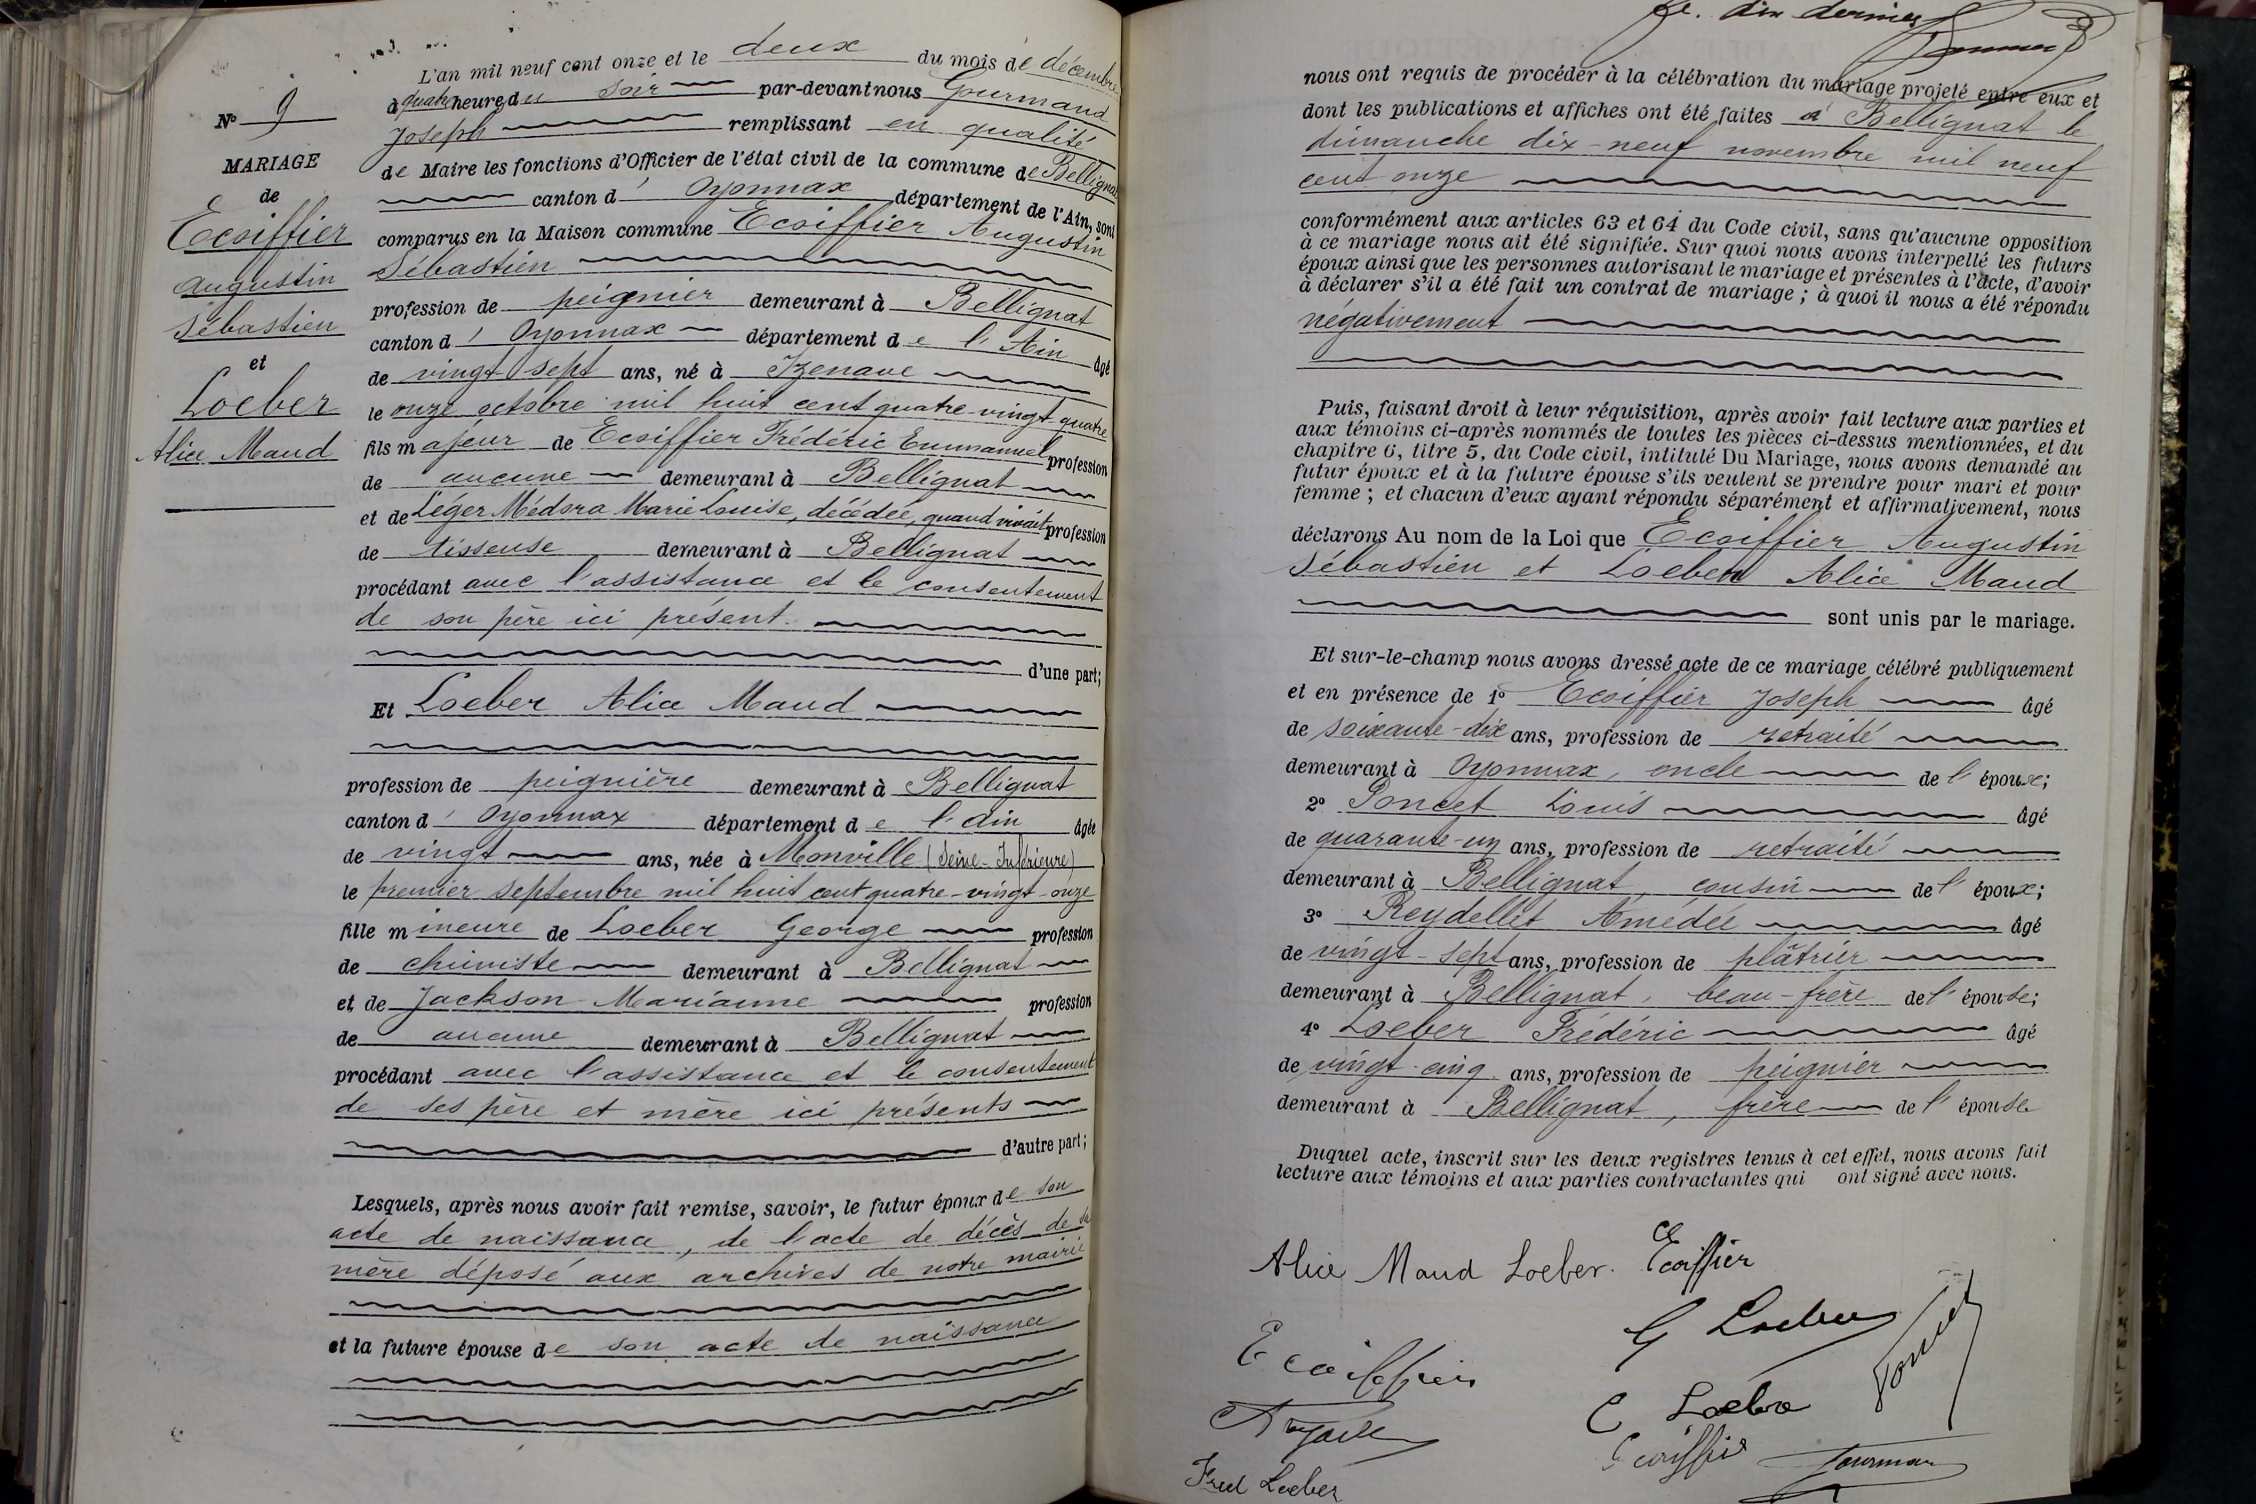 L'an mil neuf cent onze et le deux du mois de décembre
à quatre heure du soir par-devant nous Gourmand
Joseph remplissant en qualité
de Maire les fonctions d'Officier de l'état civil de la commune de Bellignat
canton d' Oyonnax département de l'Ain, sont
comparus en la Maison commune Ecoiffier Augustin
Sébastien
profession de peignier demeurant à Bellignat
canton d' Oyonnax département de l'Ain âgé
de vingt sept ans, né à Izenave
le onze octobre mil huit cent quatre-vingt quatre
fils majeur de Ecoiffier Frédéric Emmanuel profession
de aucune demeurant à Bellignat
et de Léger Médora Marie Louise, décédée, quand vivait profession
de tisseuse demeurant à Bellignat
procédant avec l'assistance et le consentement
de son père ici présent.
d'une part;
Et Loeber Alice Maud
profession de peignière demeurant à Bellignat
canton d' Oyonnax département de l'ain âgée
de vingt ans, née à Monville (Seine-Inférieure)
le premier septembre mil huit cent quatre-vingt-onze
fille mineure de Loeber George profession
de chimiste demeurant à Bellignat
et de Jackson Marianne profession
de aucune demeurant à Bellignat
procédant avec l'assistance et le consentement
de ses père et mère ici présents
d'autre part;
Lesquels, après nous avoir fait remise, savoir, le futur époux de son
acte de naissance, de l'acte de décès de sa
mère déposé aux archives de notre mairie
et la future épouse de son acte de naissance
No 9
MARIAGE
de
Ecoiffier
Augustin
Sébastien
et
Loeber
Alice Maud
fe. dix dernier
nous ont requis de procéder à la célébration du mariage projeté entre eux et
dont les publications et affiches ont été faites à Bellignat le
dimanche dix-neuf novembre mil neuf
cent onze
conformément aux articles 63 et 64 du Code civil, sans qu'aucune opposition
à ce mariage nous ait été signifiée. Sur quoi nous avons interpellé les futurs
époux ainsi que les personnes autorisant le mariage et présentes à l'acte, d'avoir
à déclarer s'il a été fait un contrat de mariage; à quoi il nous a été répondu
négativement
Puis, faisant droit à leur réquisition, après avoir fait lecture aux parties et
aux témoins ci-après nommés de toutes les pièces ci-dessus mentionnées, et du
chapitre 6, titre 5, du Code civil, intitulé Du Mariage, nous avons demandé au
futur époux et à la future épouse s'ils veulent se prendre pour mari et pour
femme; et chacun d'eux ayant répondu séparément et affirmativement, nous
déclarons Au nom de la Loi que Ecoiffier Augustin
Sébastien et Loeber Alice Maud
sont unis par le mariage.
Et sur-le-champ nous avons dressé acte de ce mariage célébré publiquement
et en présence de 1º Ecoiffier Joseph âgé
de soixante-dix ans, profession de retraité
demeurant à Oyonnax, oncle de l'époux;
2º Poncet Louis âgé
de quarante-un ans, profession de retraité
demeurant à Bellignat, cousin de l'époux;
3º Reydellet Amédée âgé
de vingt-sept ans, profession de plâtrier
demeurant à Bellignat, beau-frère de l'épouse;
4º Loeber Frédéric âgé
de vingt-cinq ans, profession de peignier
demeurant à Bellignat, frère de l'épouse
Duquel acte, inscrit sur les deux registres tenus à cet effet, nous avons fait
lecture aux témoins et aux parties contractantes qui ont signé avec nous.
Alice Maud Loeber. Ecoiffier
G Loeber
Ecoiffier
Poncet
Loeber
Ecoiffier
Fred Loeber
Gourmand